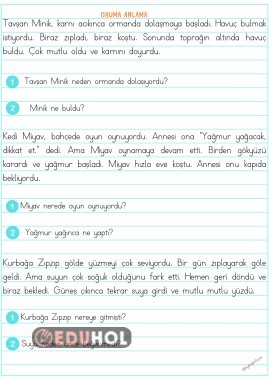 OKUMA ANLAMA
Tavşan Minik, karnı acıkınca ormanda dolaşmaya başladı. Havuç bulmak
istiyordu. Biraz zıpladı, biraz koştu. Sonunda toprağın altında havuç
buldu. Çok mutlu oldu ve karnını doyurdu.
1 Tavşan Minik neden ormanda dolaşıyordu?
2 Minik ne buldu?
Kedi Miyav, bahçede oyun oynuyordu. Annesi ona "Yağmur yağacak,
dikkat et." dedi. Ama Miyav oynamaya devam etti. Birden gökyüzü
karardı ve yağmur başladı. Miyav hızla eve koştu. Annesi onu kapıda
bekliyordu.
1 Miyav nerede oyun oynuyordu?
2 Yağmur yağınca ne yaptı?
Kurbağa Zıpzıp gölde yüzmeyi çok seviyordu. Bir gün zıplayarak göle
geldi. Ama suyun çok soğuk olduğunu fark etti. Hemen geri döndü ve
biraz bekledi. Güneş çıkınca tekrar suya girdi ve mutlu mutlu yüzdü.
1 Kurbağa Zıpzıp nereye gitmişti?
2 Suya
EDUHOL